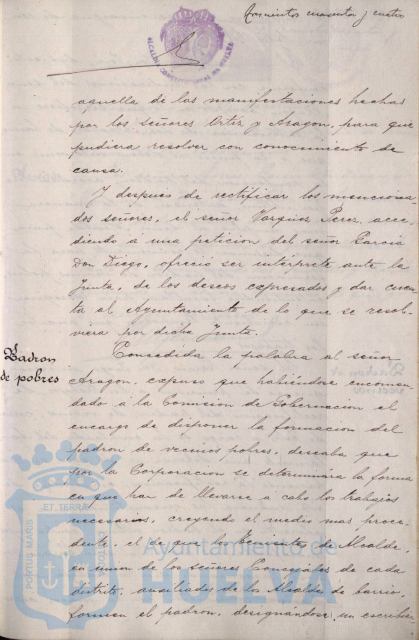 Doscientos cuarenta y cuatro
ALCALDIA CONSTITUCIONAL DE HUELVA
aquella de las manifestaciones hechas
por los señores Ortiz y Aragon, para que
pudiera resolver con conocimiento de
causa.
Y despues de rectificar los menciona
dos señores, el señor Vazquez Perez, acce
diendo á una peticion del señor Garcia
Don Diego, ofreció ser intérprete ante la
Junta, de los deseos expresados y dar cuen
ta al Ayuntamiento de lo que se resol
viera por dicha Junta.
Padron
de pobres
Concedida la palabra al señor
Aragon, expuso que habiéndose encomen
dado á la Comision de Gobernacion el
encargo de disponer la formacion del
padron de vecinos pobres, deseaba que
por la Corporacion se determinára la forma
en que han de llevarse á cabo los trabajos
necesarios, creyendo el medio mas proce
dente, el de que los Tenientes de Alcalde,
en union de los señores Concejales de cada
distrito, auxiliados de los Alcaldes de barrio,
formen el padron, designandose un escribien
PORTUS MARIS ET TERRAE
Ayuntamiento de
HUELVA